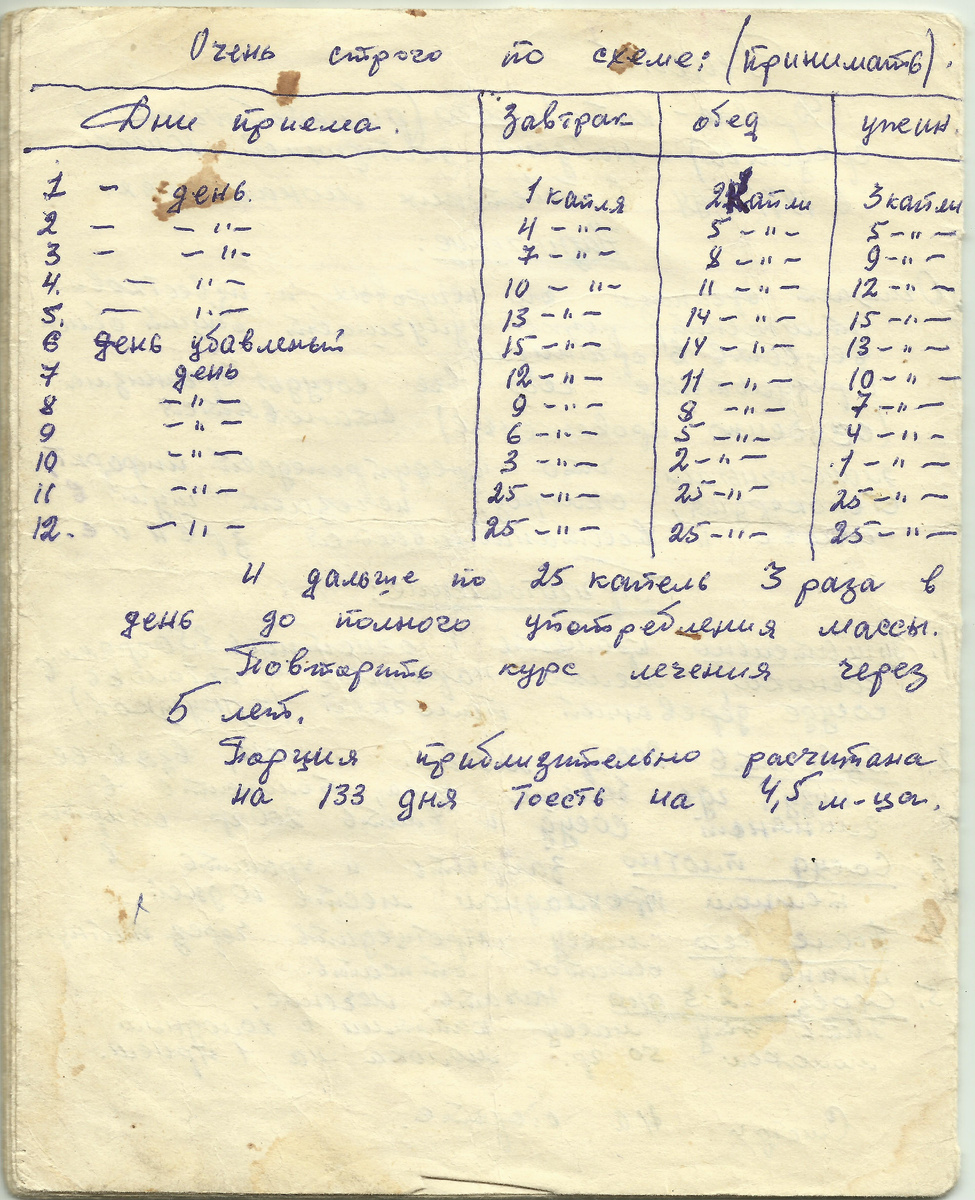 Очень строго по схеме: (принимать).
Дни приема. Завтрак обед ужин.
1 - день. 1 капля 2 капли 3 капли
2 - -"- 4 -"- 5 -"- 5 -"-
3 - -"- 7 -"- 8 -"- 9 -"-
4. - "- 10 -"- 11 -"- 12 -"-
5. - "- 13 -"- 14 -"- 15 -"-
6 день убавленый 15 -"- 14 -"- 13 -"-
7 день 12 -"- 11 -"- 10 -"-
8 -"- 9 -"- 8 -"- 7 -"-
9 -"- 6 -"- 5 -"- 4 -"-
10 -"- 3 -"- 2 -"- 1 -"-
11 -"- 25 -"- 25 -"- 25 -"-
12. -"- 25 -"- 25 -"- 25 -"-
И дальше по 25 капель 3 раза в
день до полного употребления массы.
Повторить курс лечения через
5 лет.
Порция приблизительно расчитана
на 133 дня тоесть на 4,5 м-ца.